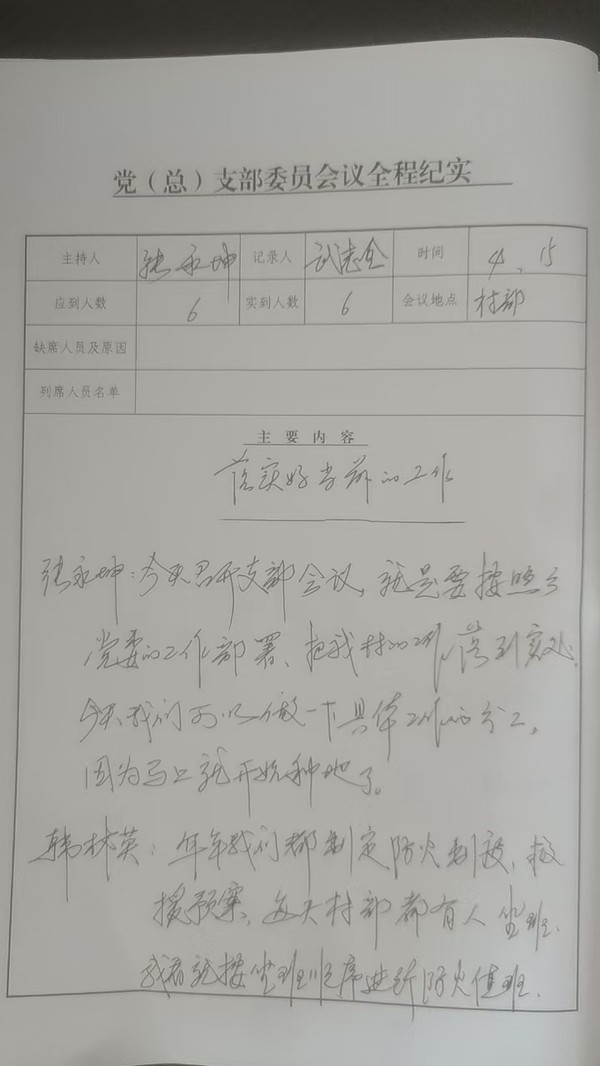 党（总）支部委员会议全程纪实
主持人 张永坤 记录人 武志全 时间 4、15
应到人数 6 实到人数 6 会议地点 村部
缺席人员及原因
列席人员名单
主要内容
落实好当前的工作
张永坤：今天召开支部会议，就是要按照乡
党委的工作部署、把我村的工作落到实处。
今天我们可以做一下具体工作的分工，
因为马上就开始种地了。
韩林英：年年我们都制定防火制度，救
援预案，每天村部都有人坐班、
我看就按坐班顺序进行防火值班、